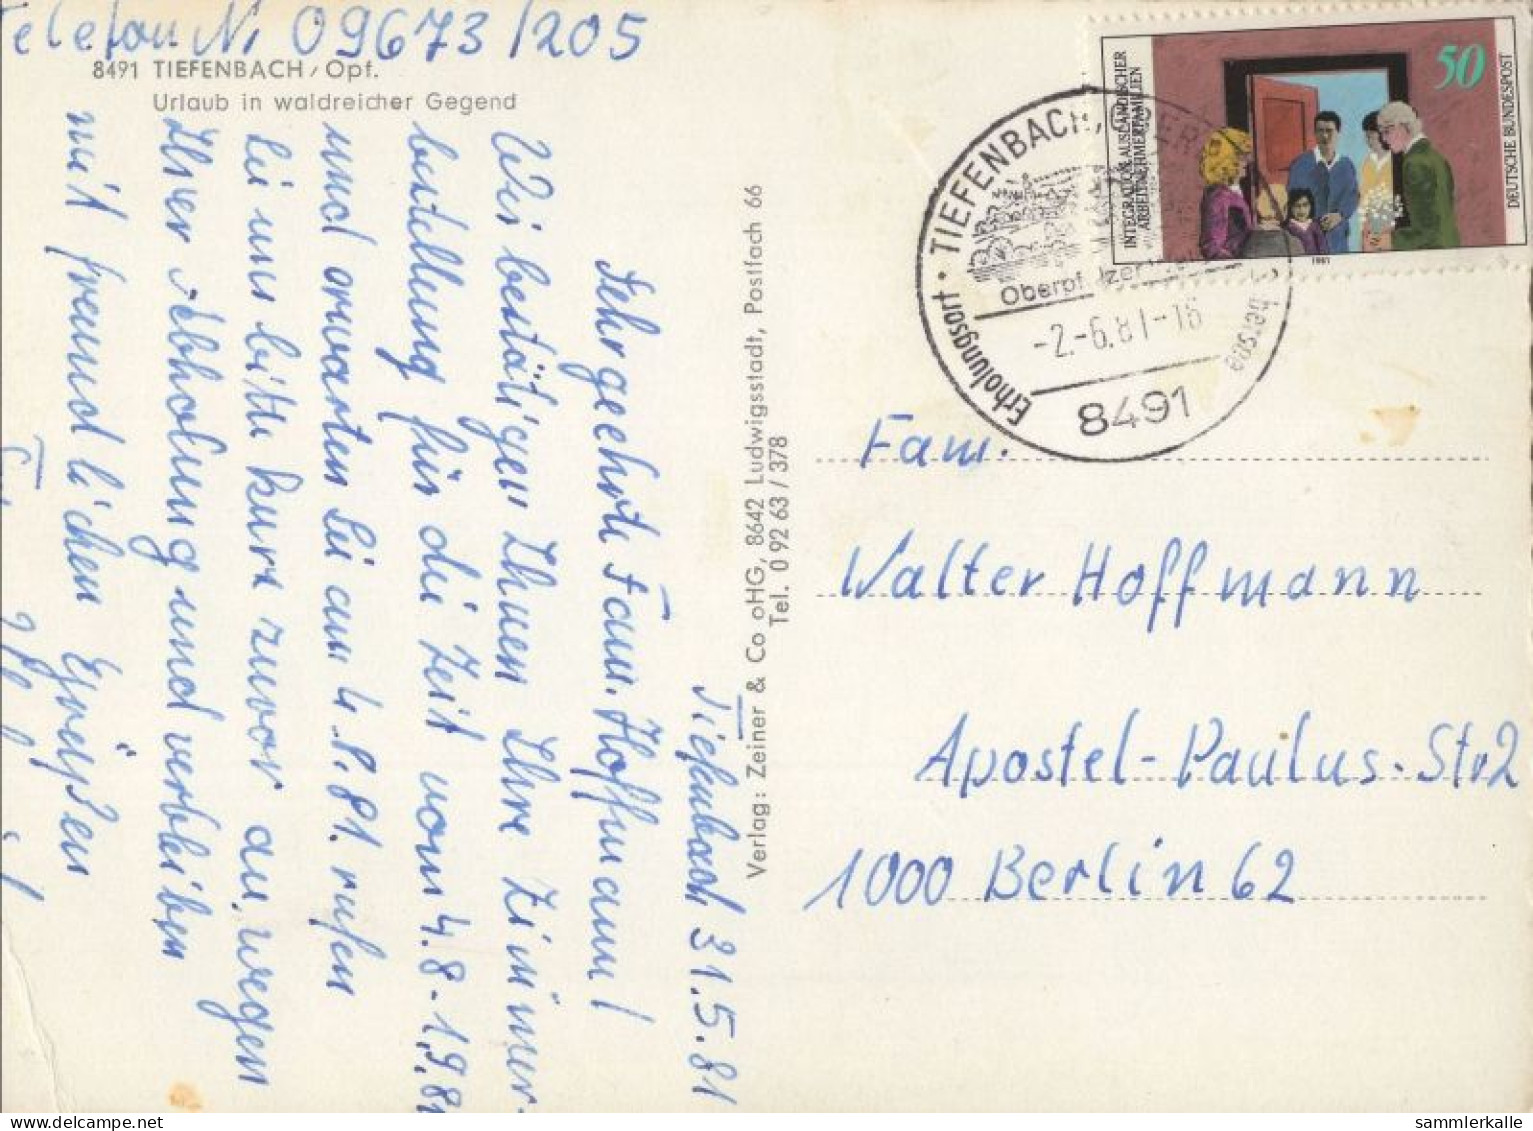 Telefon Nr 09673/205
8491 TIEFENBACH/Opf.
Urlaub in waldreicher Gegend
Tiefenbach 31.5.81
Sehrgeehrte Fam. Hoffmann!
Wir bestätigen Ihnen Ihre Zimmer-
bestellung für die Zeit vom 4.8.-1.9.81
und erwarten Sie am 4.8.81. rufen
Sie uns bitte kurz zuvor an, wegen
Ihrer Abholung und verbleiben
mit freundlichen Grüßen
Verlag: Zeiner & Co oHG, 8642 Ludwigsstadt, Postfach 66
Tel. 0 92 63 / 378
INTEGRATION AUSLÄNDISCHER
ARBEITNEHMERFAMILIEN
50
DEUTSCHE BUNDESPOST
1981
Erholungsort · TIEFENBACH,
-2.-6.81-16
8491
Fam.
Walter Hoffmann
Apostel-Paulus-Str 2
1000 Berlin 62
sammlerkalle